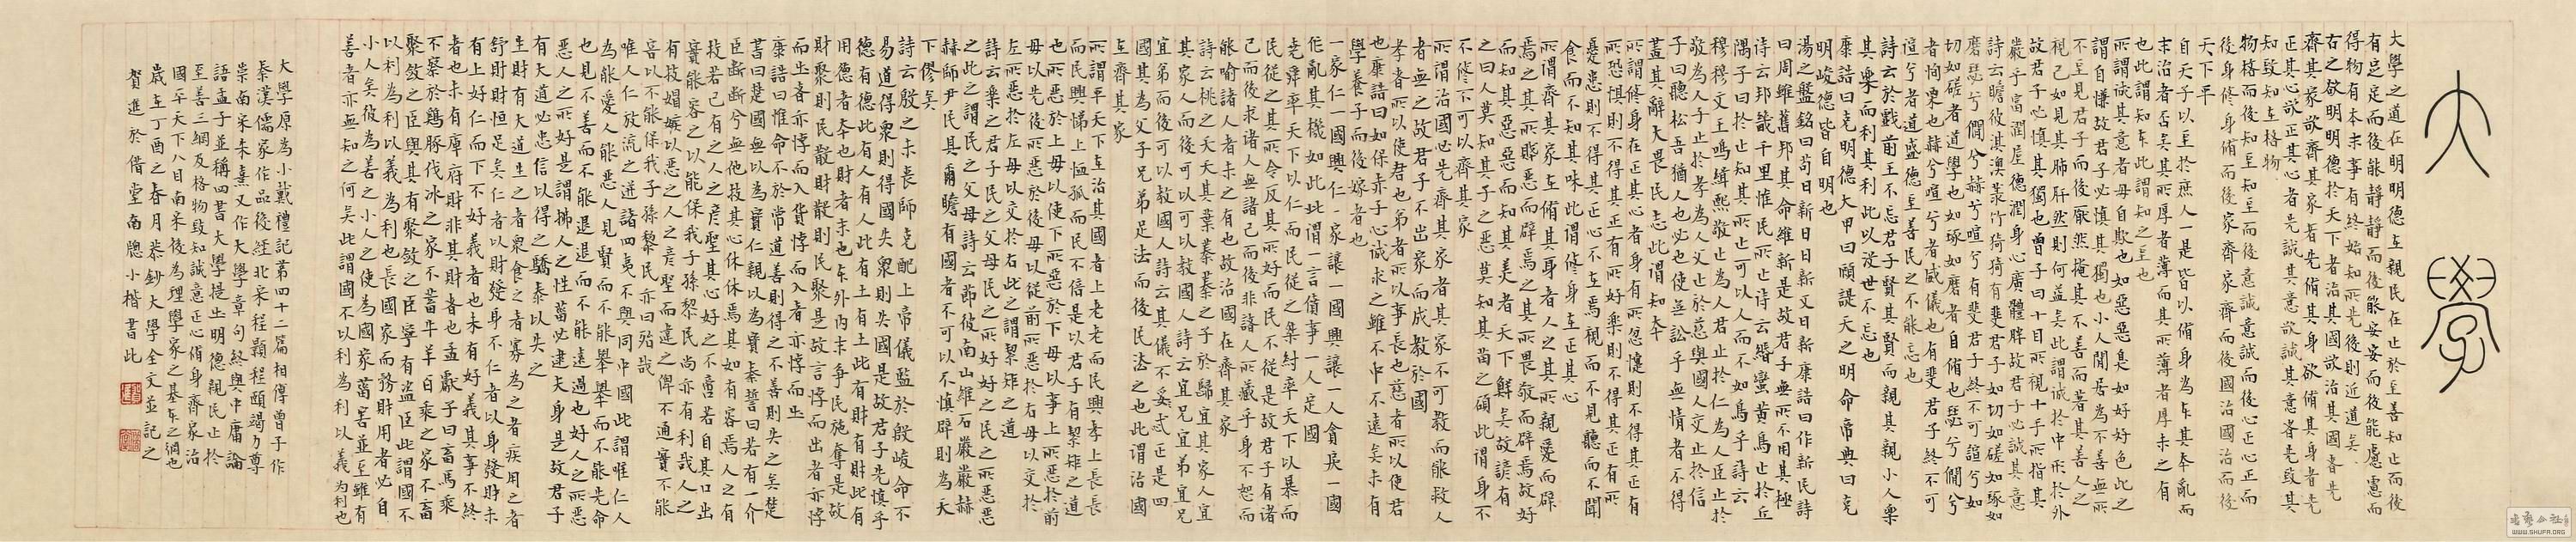 大學
大學之道在明明德在親民在止於至善知止而後
有定定而後能靜靜而後能安安而後能慮慮而
得物有本末事有終始知所先後則近道矣
古之欲明明德於天下者治其國欲治其國者先
齊其家欲齊其家者先脩其身欲脩其身者先
正其心欲正其心者先誠其意欲誠其意者先致其
知致知在格物
物格而後知至知至而後意誠意誠而後心正心正而
後身脩身脩而後家齊家齊而後國治國治而後
天下平
自天子以至於庶人一是皆以脩身為本其本亂而
末治者否矣其所厚者薄而其所薄者厚未之有
也此謂知本此謂知之至也
所謂誠其意者毋自欺也如惡惡臭如好好色此之
謂自慊故君子必慎其獨也小人閒居為不善無所
不至見君子而後厭然掩其不善而著其善人之
視己如見其肺肝然則何益矣此謂誠於中形於外
故君子必慎其獨也曾子曰十目所視十手所指其
嚴乎富潤屋德潤身心廣體胖故君子必誠其意
詩云瞻彼淇澳菉竹猗猗有斐君子如切如磋如琢如
磨瑟兮僩兮赫兮喧兮有斐君子終不可諠兮如
切如磋者道學也如琢如磨者自脩也瑟兮僩兮
者恂慄也赫兮喧兮者威儀也有斐君子終不可
諠兮者道盛德至善民之不能忘也
詩云於戲前王不忘君子賢其賢而親其親小人樂
其樂而利其利此以沒世不忘也
康誥曰克明德大甲曰顧諟天之明命帝典曰克
明峻德皆自明也
湯之盤銘曰苟日新日日新又日新康誥曰作新民詩
曰周雖舊邦其命維新是故君子無所不用其極
詩云邦畿千里惟民所止詩云緡蠻黃鳥止於丘
隅子曰於止知其所止可以人而不如鳥乎詩云
穆穆文王於緝熙敬止為人君止於仁為人臣止於
敬為人子止於孝為人父止於慈與國人交止於信
子曰聽訟吾猶人也必也使無訟乎無情者不得
盡其辭大畏民志此謂知本
所謂修身在正其心者身有所忿懥則不得其正有
所恐懼則不得其正有所好樂則不得其正有所
憂患則不得其正心不在焉視而不見聽而不聞
食而不知其味此謂修身在正其心
所謂齊其家在脩其身者人之其所親愛而辟
焉之其所賤惡而辟焉之其所畏敬而辟焉故好
而知其惡惡而知其美者天下鮮矣故諺有
之曰人莫知其子之惡莫知其苗之碩此謂身不
不修不可以齊其家
所謂治國必先齊其家者其家不可教而能教人
者無之故君子不出家而成教於國
孝者所以使君也弟者所以事長也慈者所以使君
也康誥曰如保赤子心誠求之雖不中不遠矣未有
學養子而後嫁者也
一家仁一國興仁一家讓一國興讓一人貪戾一國
作亂其機如此此謂一言僨事一人定國
堯舜率天下以仁而民從之桀紂率天下以暴而
民從之其所令反其所好而民不從是故君子有諸
己而後求諸人無諸己而後非諸人所藏乎身不恕而
能喻諸人者未之有也故治國在齊其家
詩云桃之夭夭其葉蓁蓁之子於歸宜其家人宜
其家人而後可以教國人詩云宜兄宜弟宜兄
宜弟而後可以教國人詩云其儀不忒正是四
國其為父子兄弟足法而後民法之也此謂治國
在齊其家
所謂平天下在治其國者上老老而民興孝上長長
而民興悌上恤孤而民不倍是以君子有絜矩之道
也所惡於上毋以使下所惡於下毋以事上所惡於前
毋以先後所惡於後毋以從前所惡於右毋以交於
左所惡於左毋以交於右此之謂絜矩之道
詩云樂之君子民之父母民之所好好之民之所惡惡
之此之謂民之父母詩云節彼南山維石巖巖赫
赫師尹民具爾瞻有國者不可以不慎辟則為天
下僇矣
詩云殷之未喪師克配上帝儀監於殷峻命不
易道得眾則得國失眾則失國是故君子先慎乎
德有德此有人有人此有土有土此有財有財此有
用德者本也財者末也外本內末爭民施奪是故
財聚則民散財散則民聚是故言悖而出者亦悖
而出者亦悖而入貨悖而入者亦悖而出
康誥曰惟命不於常道善則得之不善則失之矣楚
書曰楚國無以為寶仁親以為寶秦誓曰若有一介
臣斷斷兮無他技其心休休焉其如有容焉人之有
技若己有之人之彥聖其心好之不啻若自其口出
寔能容之以能保我子孫黎民尚亦有利哉人之
有技媢嫉以惡之人之彥聖而違之俾不通寔不能
容以不能保我子孫黎民亦曰殆哉
唯人人仁放流之迸諸四夷不與同中國此謂唯仁人
為能愛人能惡人見賢而不能舉舉而不能先命
也見不善而不能退退而不能遠過也好人之所惡
惡人之所好是謂拂人之性菑必逮夫身是故君子
有大道必忠信以得之驕泰以失之
生財有大道生之者眾食之者寡為之者疾用之者
舒則財恒足矣仁者以財發身不仁者以身發財未
有上好仁而下不好義者也未有好義其事不終
者也未有庫府財非其財者也孟獻子曰畜馬乘
不察於鷄豚伐冰之家不蓄牛羊百乘之家不畜
聚斂之臣與其有聚斂之臣寧有盜臣此謂國不
以利為利以義為利也長國家而務財用者必自
小人矣彼為善之小人之使為國家菑害並至雖有
善者亦無如之何矣此謂國不以利為利以義為利也
大學原為小戴禮記第四十二篇相傳曾子作
秦漢儒家作品後經北宋程顥程頤竭力尊
崇南宋朱熹又作大學章句終與中庸論
語孟子並稱四書大學提出明德親民止於
至善三綱及格物致知誠意正心脩身齊家治
國平天下八目南宋後為理學家之基本之綱也
歲在丁酉之春月恭鈔大學全文並記之
賀進於借堂南牕小楷書此
WWW.SHUFA.ORG